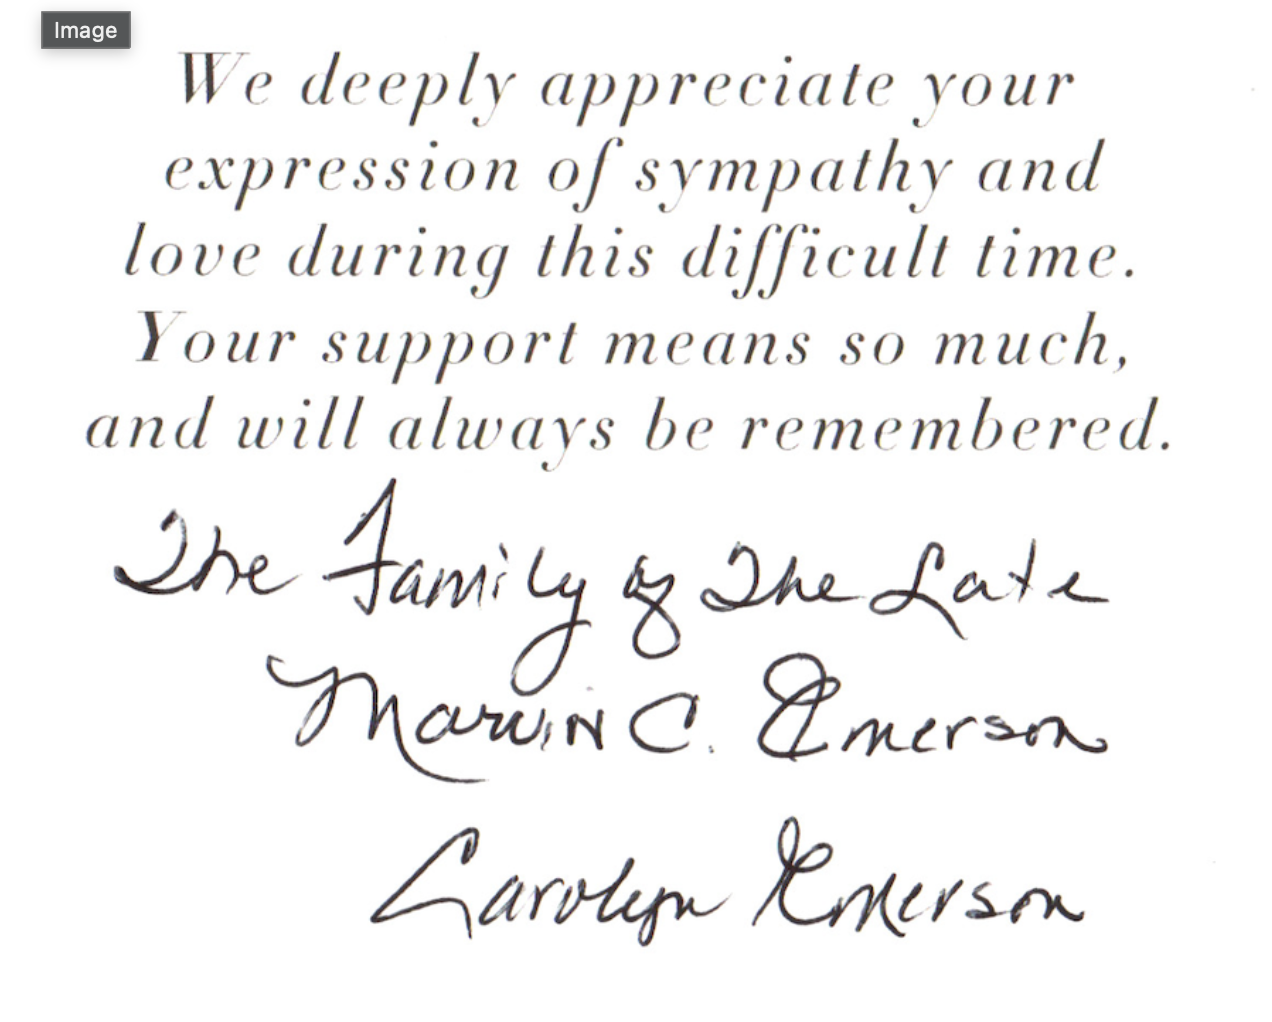 Image
We deeply appreciate your
expression of sympathy and
love during this difficult time.
Your support means so much,
and will always be remembered.
The Family of The Late
Marvin C. Emerson
Carolyn Emerson